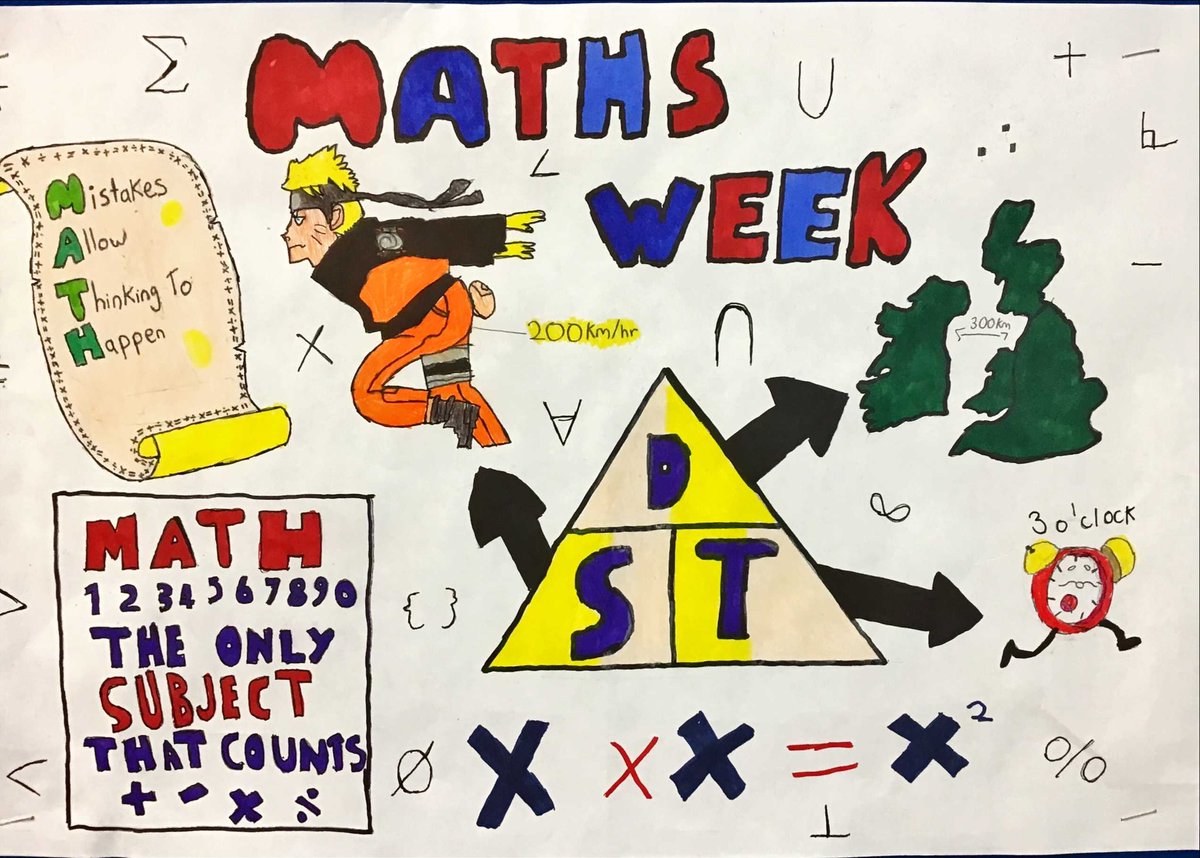 MATHS
WEEK
Mistakes
Allow
Thinking To
Happen
200Km/hr
300Km
D
S T
3 o'clock
MATH
1 2 3 4 5 6 7 8 9 0
THE ONLY
SUBJECT
THAT COUNTS
+ - × ÷
X × X = X²
Σ
U
+
-
∴
∠
×
∩
∀
∞
{ }
Ø
%
⊥
<